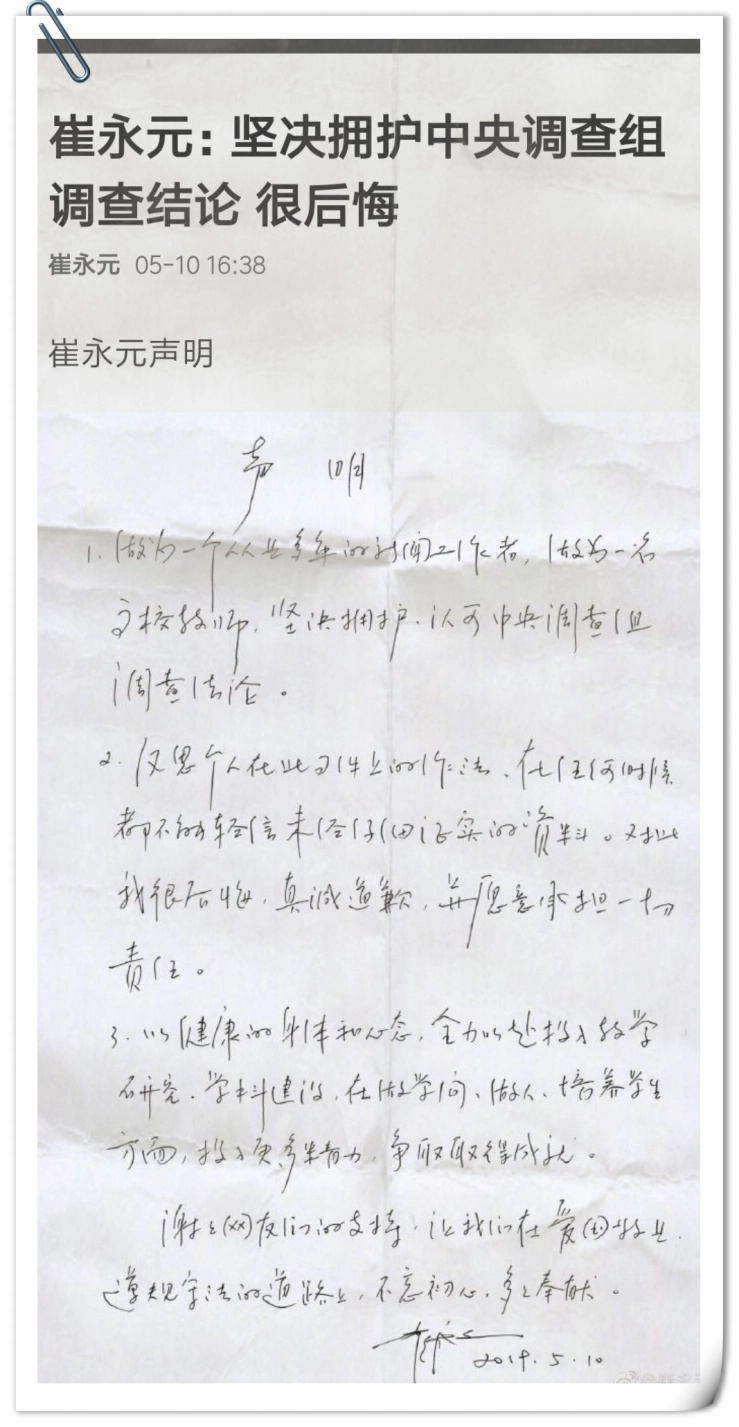 崔永元：坚决拥护中央调查组
调查结论 很后悔
崔永元 05-10 16:38
崔永元声明
声 明
1. 做为一个从业多年的新闻工作者，做为一名
高校教师，坚决拥护、认可中央调查组
调查结论。
2. 反思个人在此事件上的作法，在任何时候
都不能轻信未经仔细证实的资料。对此
我很后悔，真诚道歉，并愿意承担一切
责任。
3. 以健康的身体和心态，全力以赴投入教学
研究、学科建设，在做学问、做人、培养学生
方面，投入更多精力，争取取得成就。
谢谢网友们的支持，让我们在爱国敬业、
遵规守法的道路上，不忘初心，多多奉献。
2019.5.10